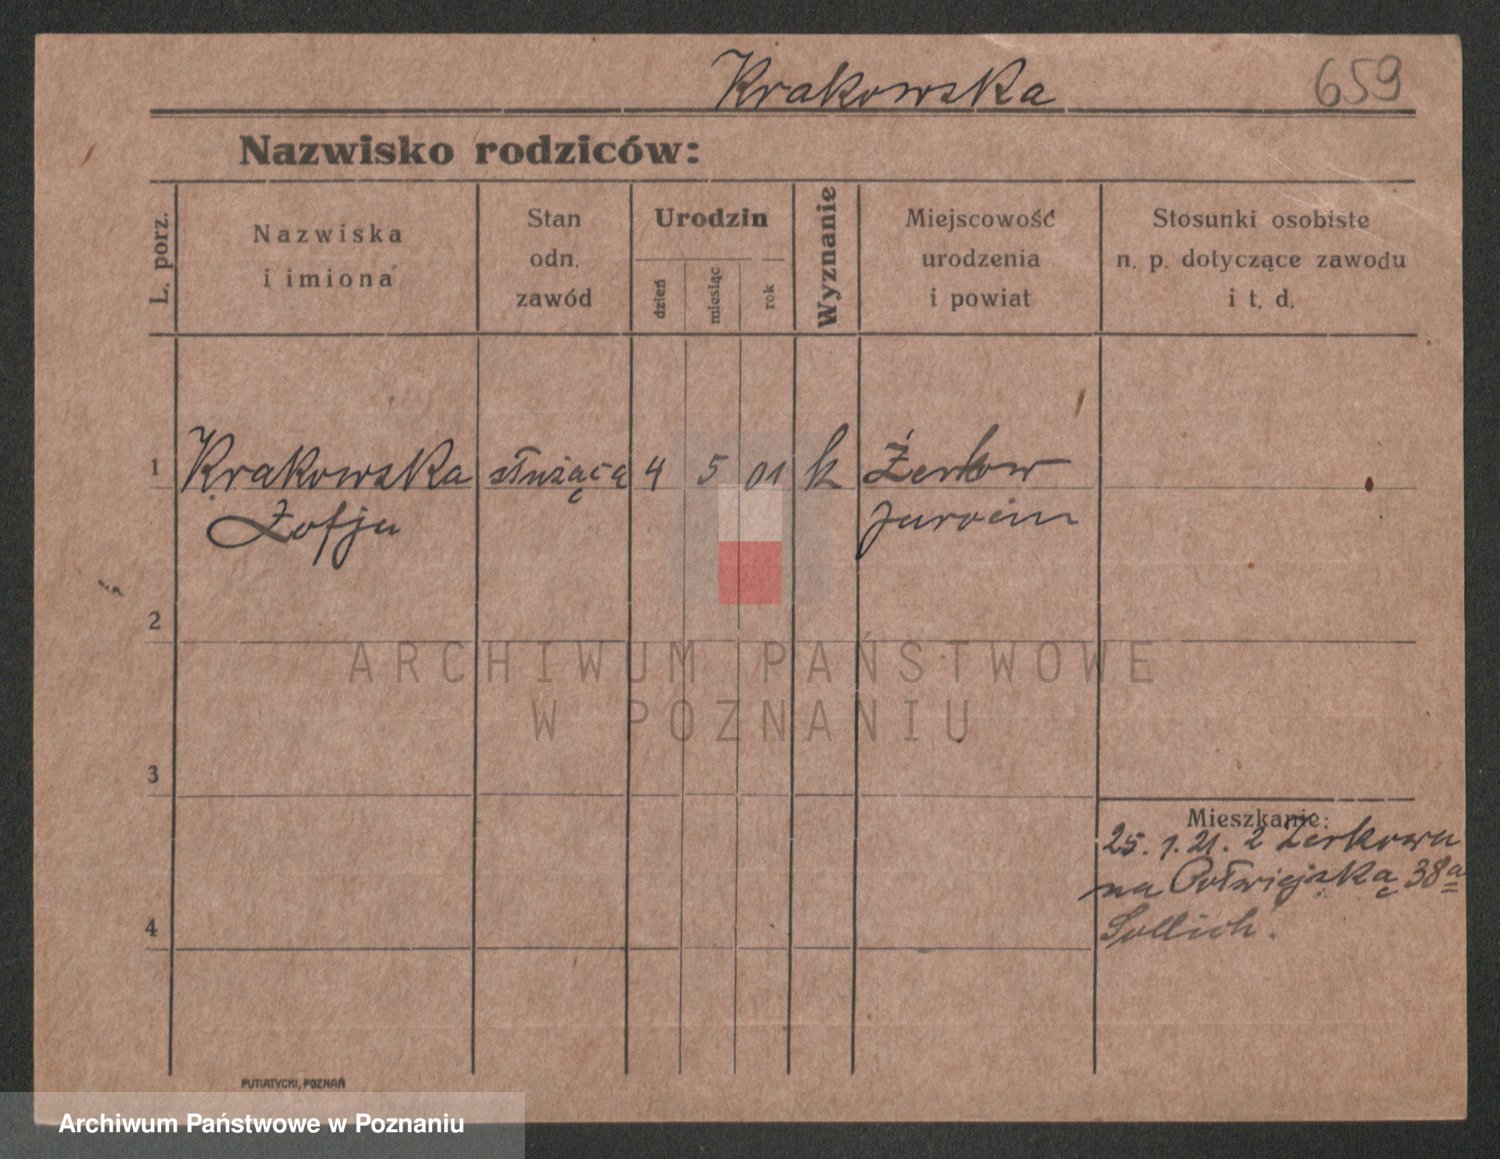 Krakowska
659
Nazwisko rodziców:
L. porz.
Nazwiska
i imiona
Stan
odn.
zawód
Urodzin
dzień
miesiąc
rok
Wyznanie
Miejscowość
urodzenia
i powiat
Stosunki osobiste
n. p. dotyczące zawodu
i t. d.
1
Krakowska służąca 4 5 01 k Żerkow
Zofja
2
ARCHIWUM PAŃSTWOWE
W POZNANIU
3
Mieszkanie:
25. 1. 21. z Żerkowa
na Półwiejską 38a
4
Sollich.
PUTIATYCKI, POZNAŃ
Archiwum Państwowe w Poznaniu